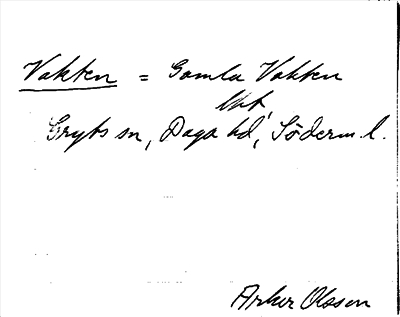 Vakten = Gamla Vakten
Gryts sn, Daga hd, Söderm. l.
Olsson